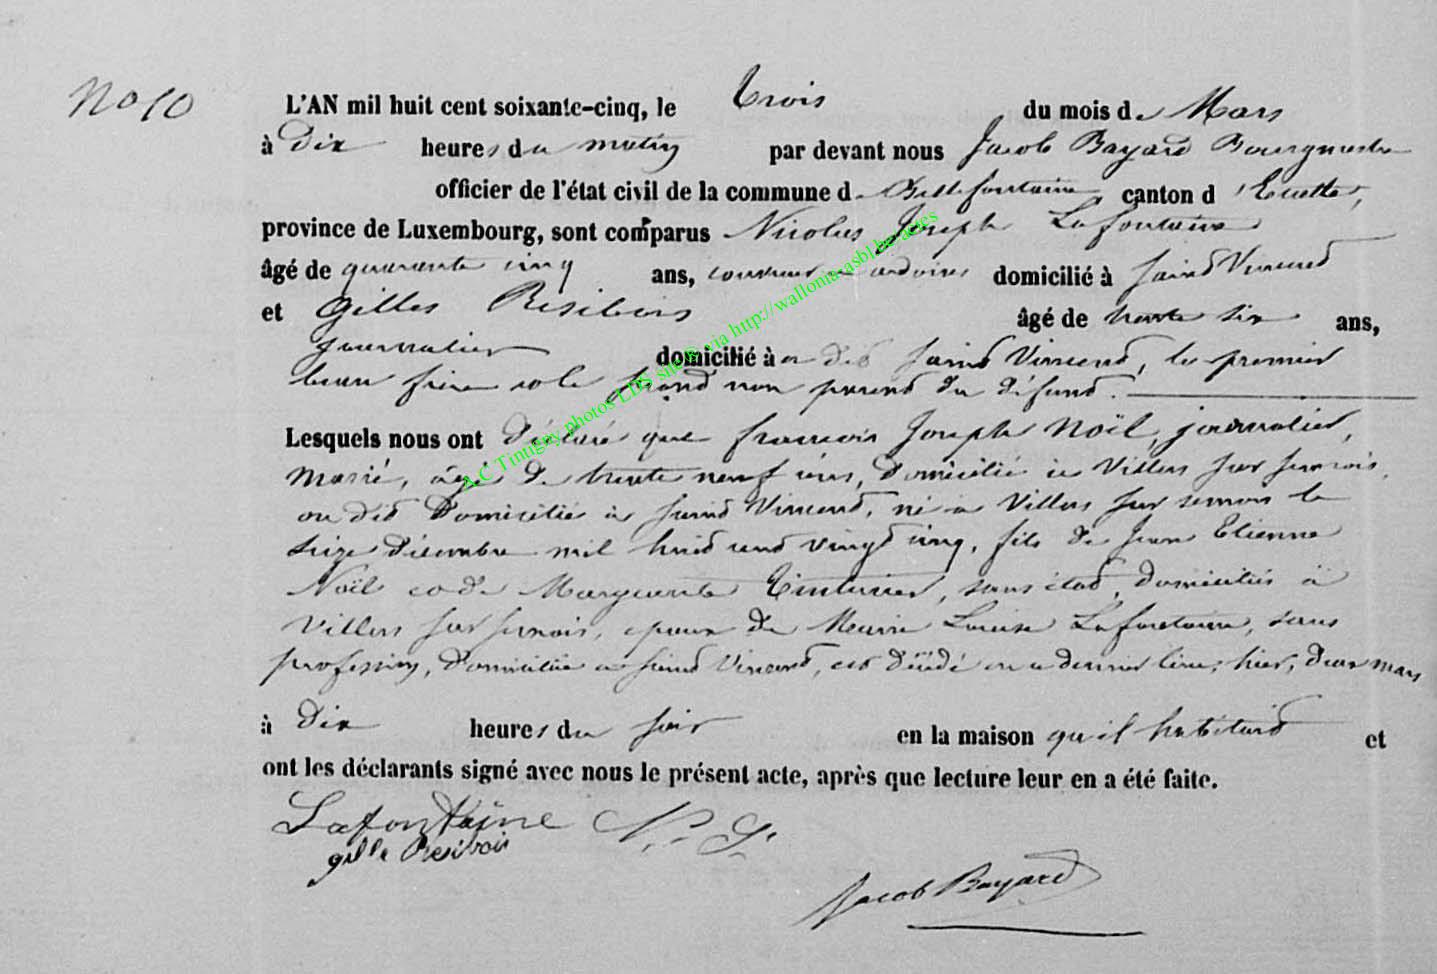 No 10
L'AN mil huit cent soixante-cinq, le trois du mois de Mars
à dix heures du matin par devant nous Jacob Bayard Bourgmestre
officier de l'état civil de la commune de Bellefontaine canton d'Etalle,
province de Luxembourg, sont comparus Nicolas Joseph Lafontaine
âgé de quarante cinq ans, couvreur en ardoises domicilié à Saint Vincent
et Gilles Resibois âgé de trente six ans,
journalier domicilié à au dit Saint Vincent, le premier
beau frère et le second non parent du défunt.
Lesquels nous ont déclaré que francois Joseph Noël, journalier,
marié, âgé de trente neuf ans, domicilié à Villers sur semois,
ou dit domicilié à Saint Vincent, né à Villers sur semois le
seize décembre mil huit cent vingt cinq, fils de Jean Etienne
Noël et de Marguerite Tinturier, sans état, domiciliés à
Villers sur semois, epoux de Marie Louise Lafontaine, sans
profession, domiciliée à Saint Vincent, est décédé en ce dernier lieu, hier, deux mars
à dix heures du soir en la maison qu'il habitait et
ont les déclarants signé avec nous le présent acte, après que lecture leur en a été faite.
Lafontaine N. J.
gille Resibois
Jacob Bayard
A.C Tintigny photos LDS site © via http://wallonia-asbl.be/actes